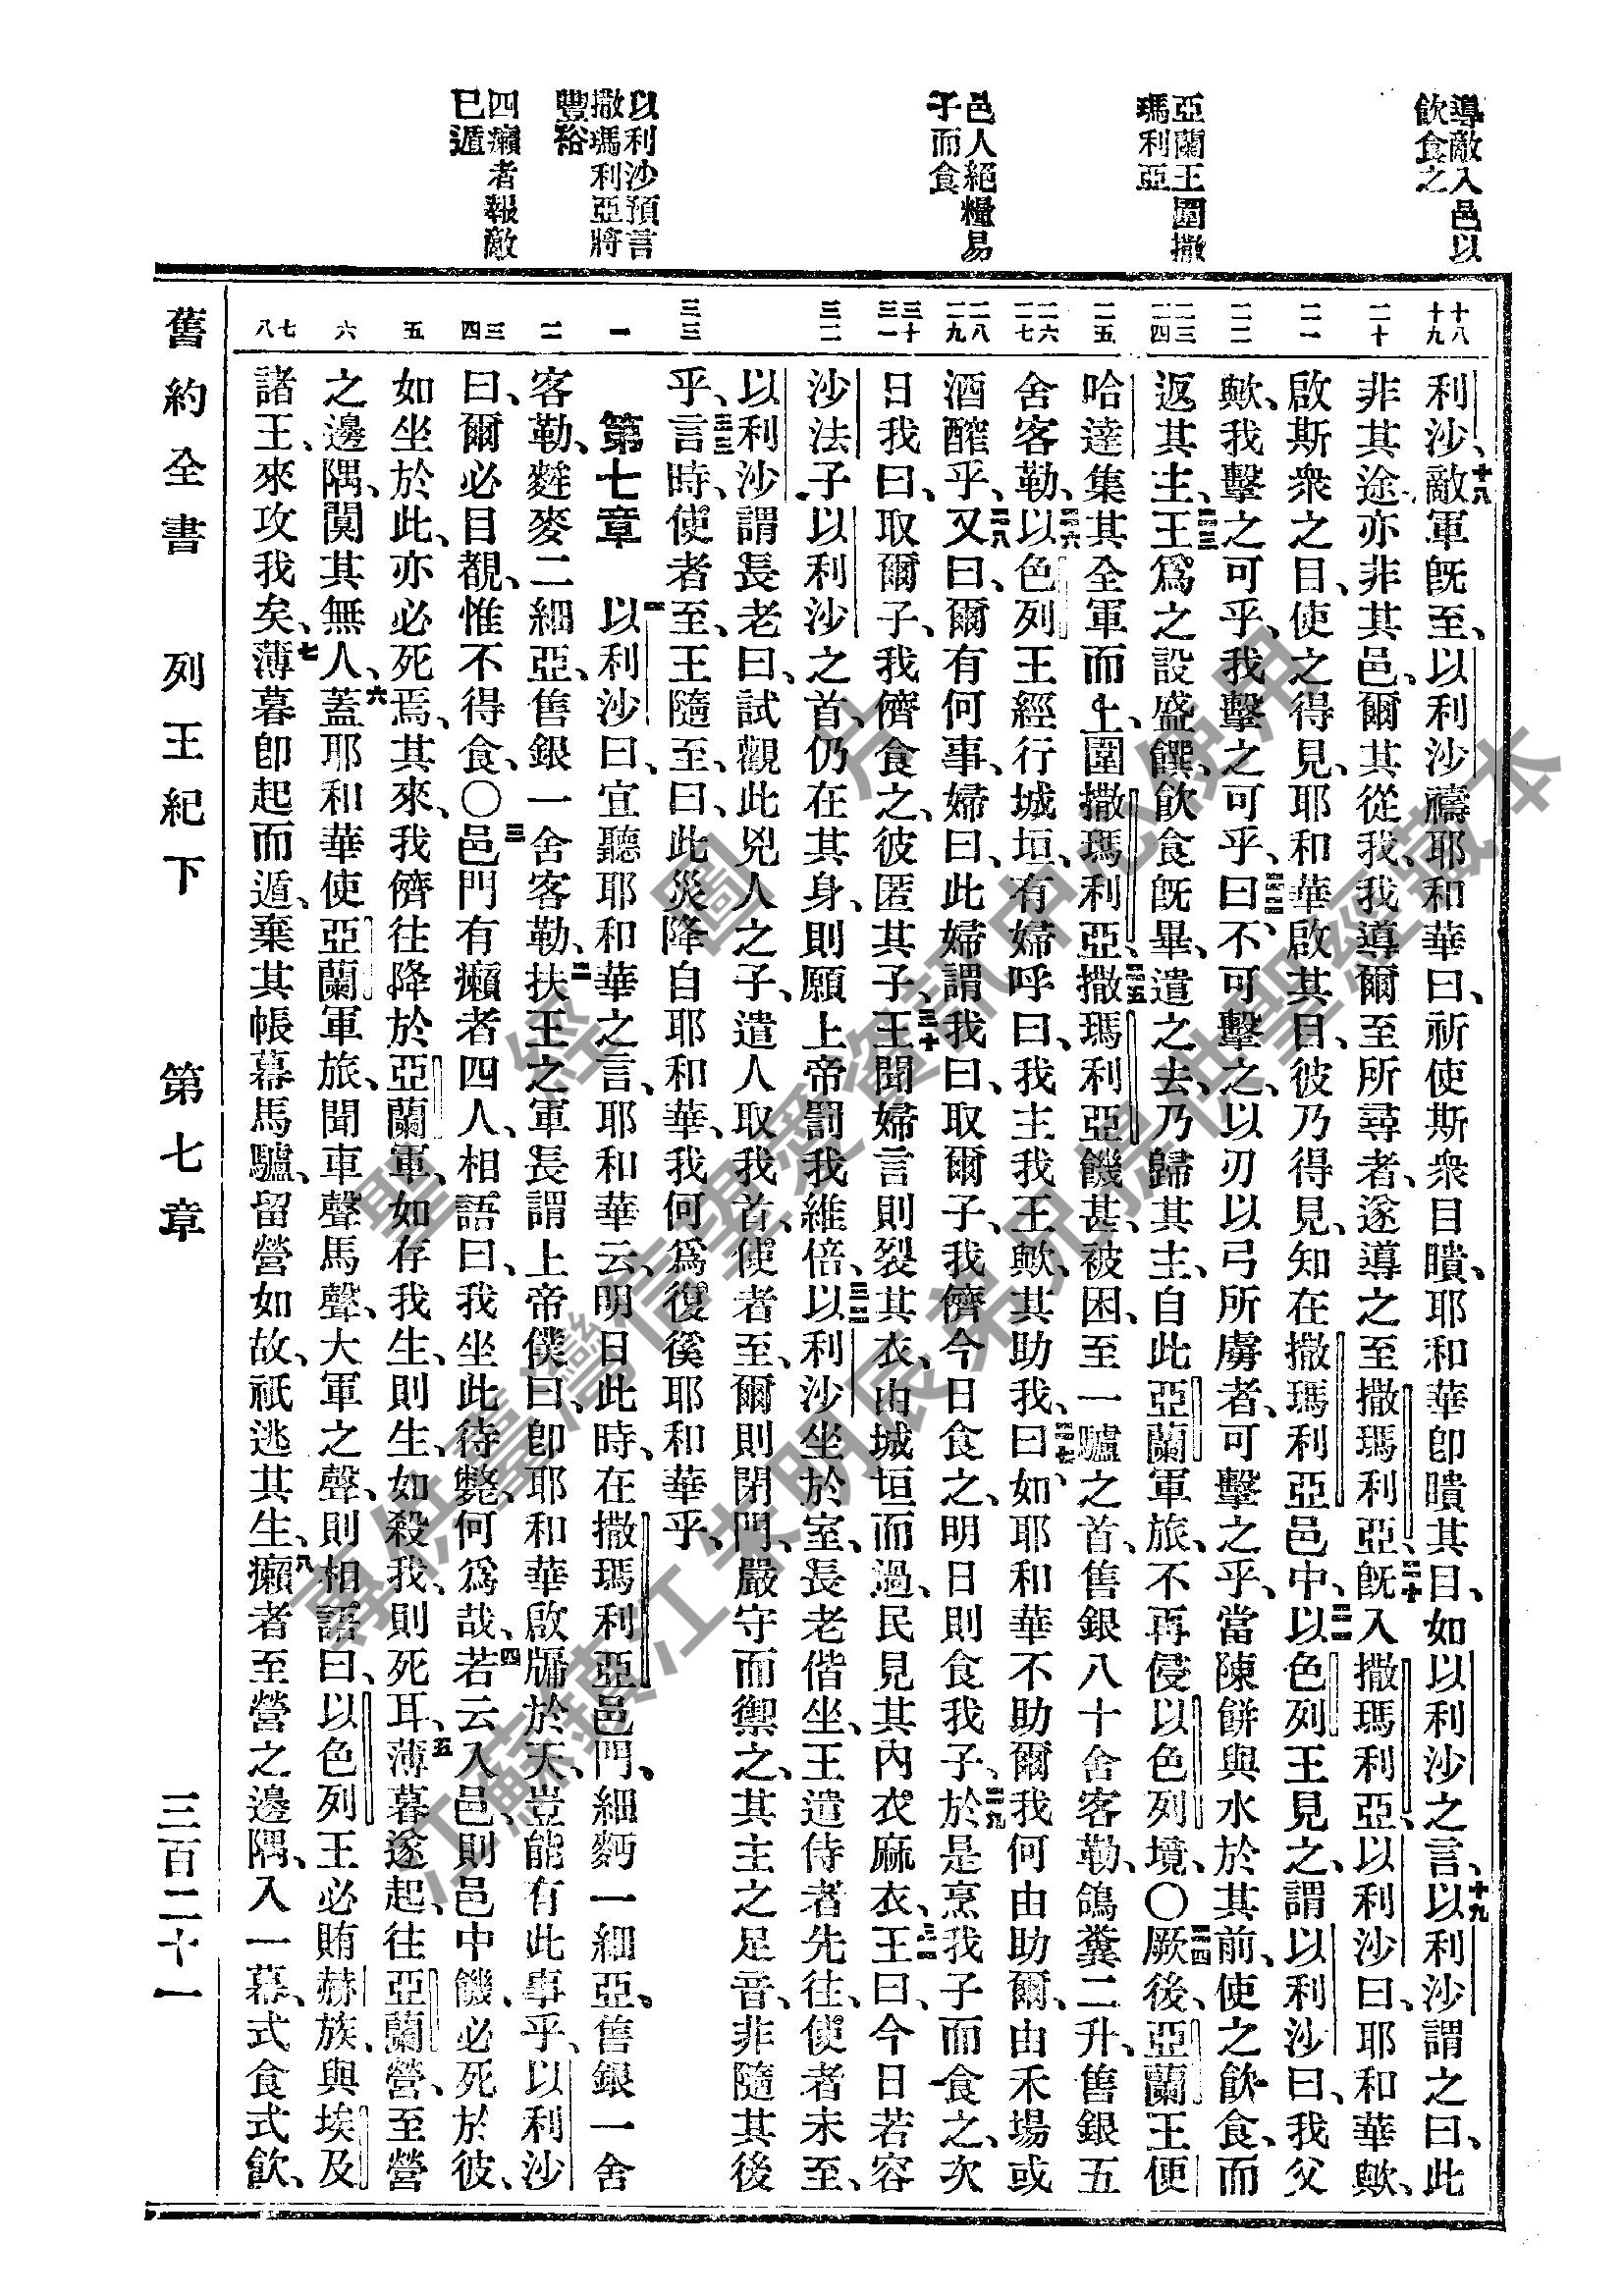 導敵入邑以
飲食之
亞蘭王圍撒
瑪利亞
邑人絕糧易
子而食
以利沙預言
撒瑪利亞將
豐裕
四癩者報敵
已遁
十八
十九
二十
二一
二二
二三
二四
二五
二六
二七
二八
二九
三十
三一
三二
三三
一
二
三
四
五
六
七
八
利沙、十八敵軍既至、以利沙禱耶和華曰、祈使斯衆目瞶、耶和華卽瞶其目、如以利沙之言、十九以利沙謂之曰、此
非其途、亦非其邑、爾其從我、我導爾至所尋者、遂導之至撒瑪利亞、二十既入撒瑪利亞、以利沙曰、耶和華歟、
啟斯衆之目、使之得見、耶和華啟其目、彼乃得見、知在撒瑪利亞邑中、二一以色列王見之、謂以利沙曰、我父
歟、我擊之可乎、我擊之可乎、二二曰、不可擊之、以刃以弓所虜者、可擊之乎、當陳餅與水於其前、使之飲食、而
返其主、二三王爲之設盛饌、飲食既畢、遣之去、乃歸其主、自此亞蘭軍旅、不再侵以色列境、〇二四厥後、亞蘭王便
哈達集其全軍而上、圍撒瑪利亞、二五撒瑪利亞饑甚、被困、至一驢之首、售銀八十舍客勒、鴿糞二升、售銀五
舍客勒、二六以色列王經行城垣、有婦呼曰、我主我王歟、其助我、二七曰、如耶和華不助爾、我何由助爾、由禾場或
酒醡乎、二八又曰、爾有何事、婦曰、此婦謂我曰、取爾子、我儕今日食之、明日則食我子、二九於是烹我子而食之、次
日我曰、取爾子、我儕食之、彼匿其子、三十王聞婦言、則裂其衣、由城垣而過、民見其內衣麻衣、三一王曰、今日若容
沙法子以利沙之首、仍在其身、則願上帝罰我維倍、三二以利沙坐於室、長老偕坐、王遣侍者先往、使者未至、
以利沙謂長老曰、試觀此兇人之子、遣人取我首、使者至、爾則閉門、嚴守而禦之、其主之足音、非隨其後
乎、三三言時、使者至、王隨至、曰、此災降自耶和華、我何爲復徯耶和華乎、
第七章 一以利沙曰、宜聽耶和華之言、耶和華云、明日此時、在撒瑪利亞邑門、細麪一細亞、售銀一舍
客勒、麰麥二細亞、售銀一舍客勒、二扶王之軍長謂上帝僕曰、卽耶和華啟牖於天、豈能有此事乎、以利沙
曰、爾必目覩、惟不得食、〇三邑門有癩者四人、相語曰、我坐此待斃、何爲哉、四若云入邑、則邑中饑、必死於彼、
如坐於此、亦必死焉、其來、我儕往降於亞蘭軍、如存我生、則生、如殺我、則死耳、五薄暮遂起、往亞蘭營、至營
之邊隅、闃其無人、六蓋耶和華使亞蘭軍旅、聞車聲馬聲、大軍之聲、則相語曰、以色列王必賄赫族、與埃及
諸王、來攻我矣、七薄暮卽起而遁、棄其帳幕馬驢、留營如故、祇逃其生、八癩者至營之邊隅、入一幕、式食式飲、
舊約全書 列王紀下 第七章 三百二十一
聖經圖片
專供臺灣信望愛資訊中心使用
江蘇鎮江朱明辰弟兄提供聖經藏本